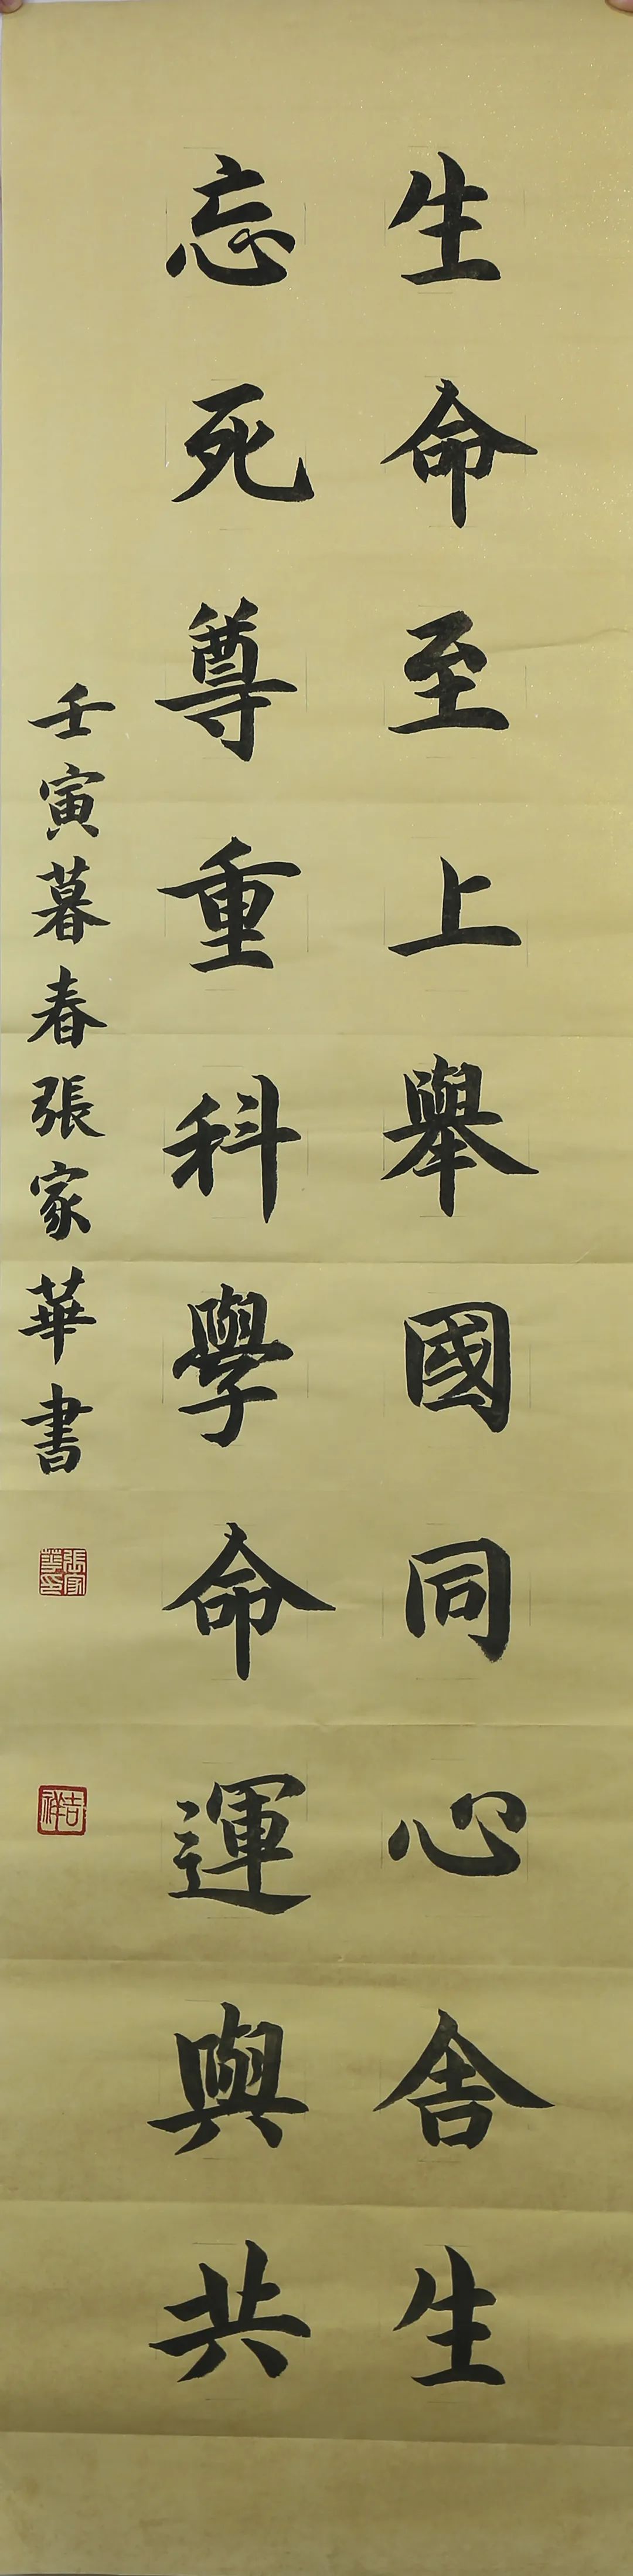 生命至上舉國同心舍生
忘死尊重科學命運與共
壬寅暮春張家華書
張家華印
吉祥